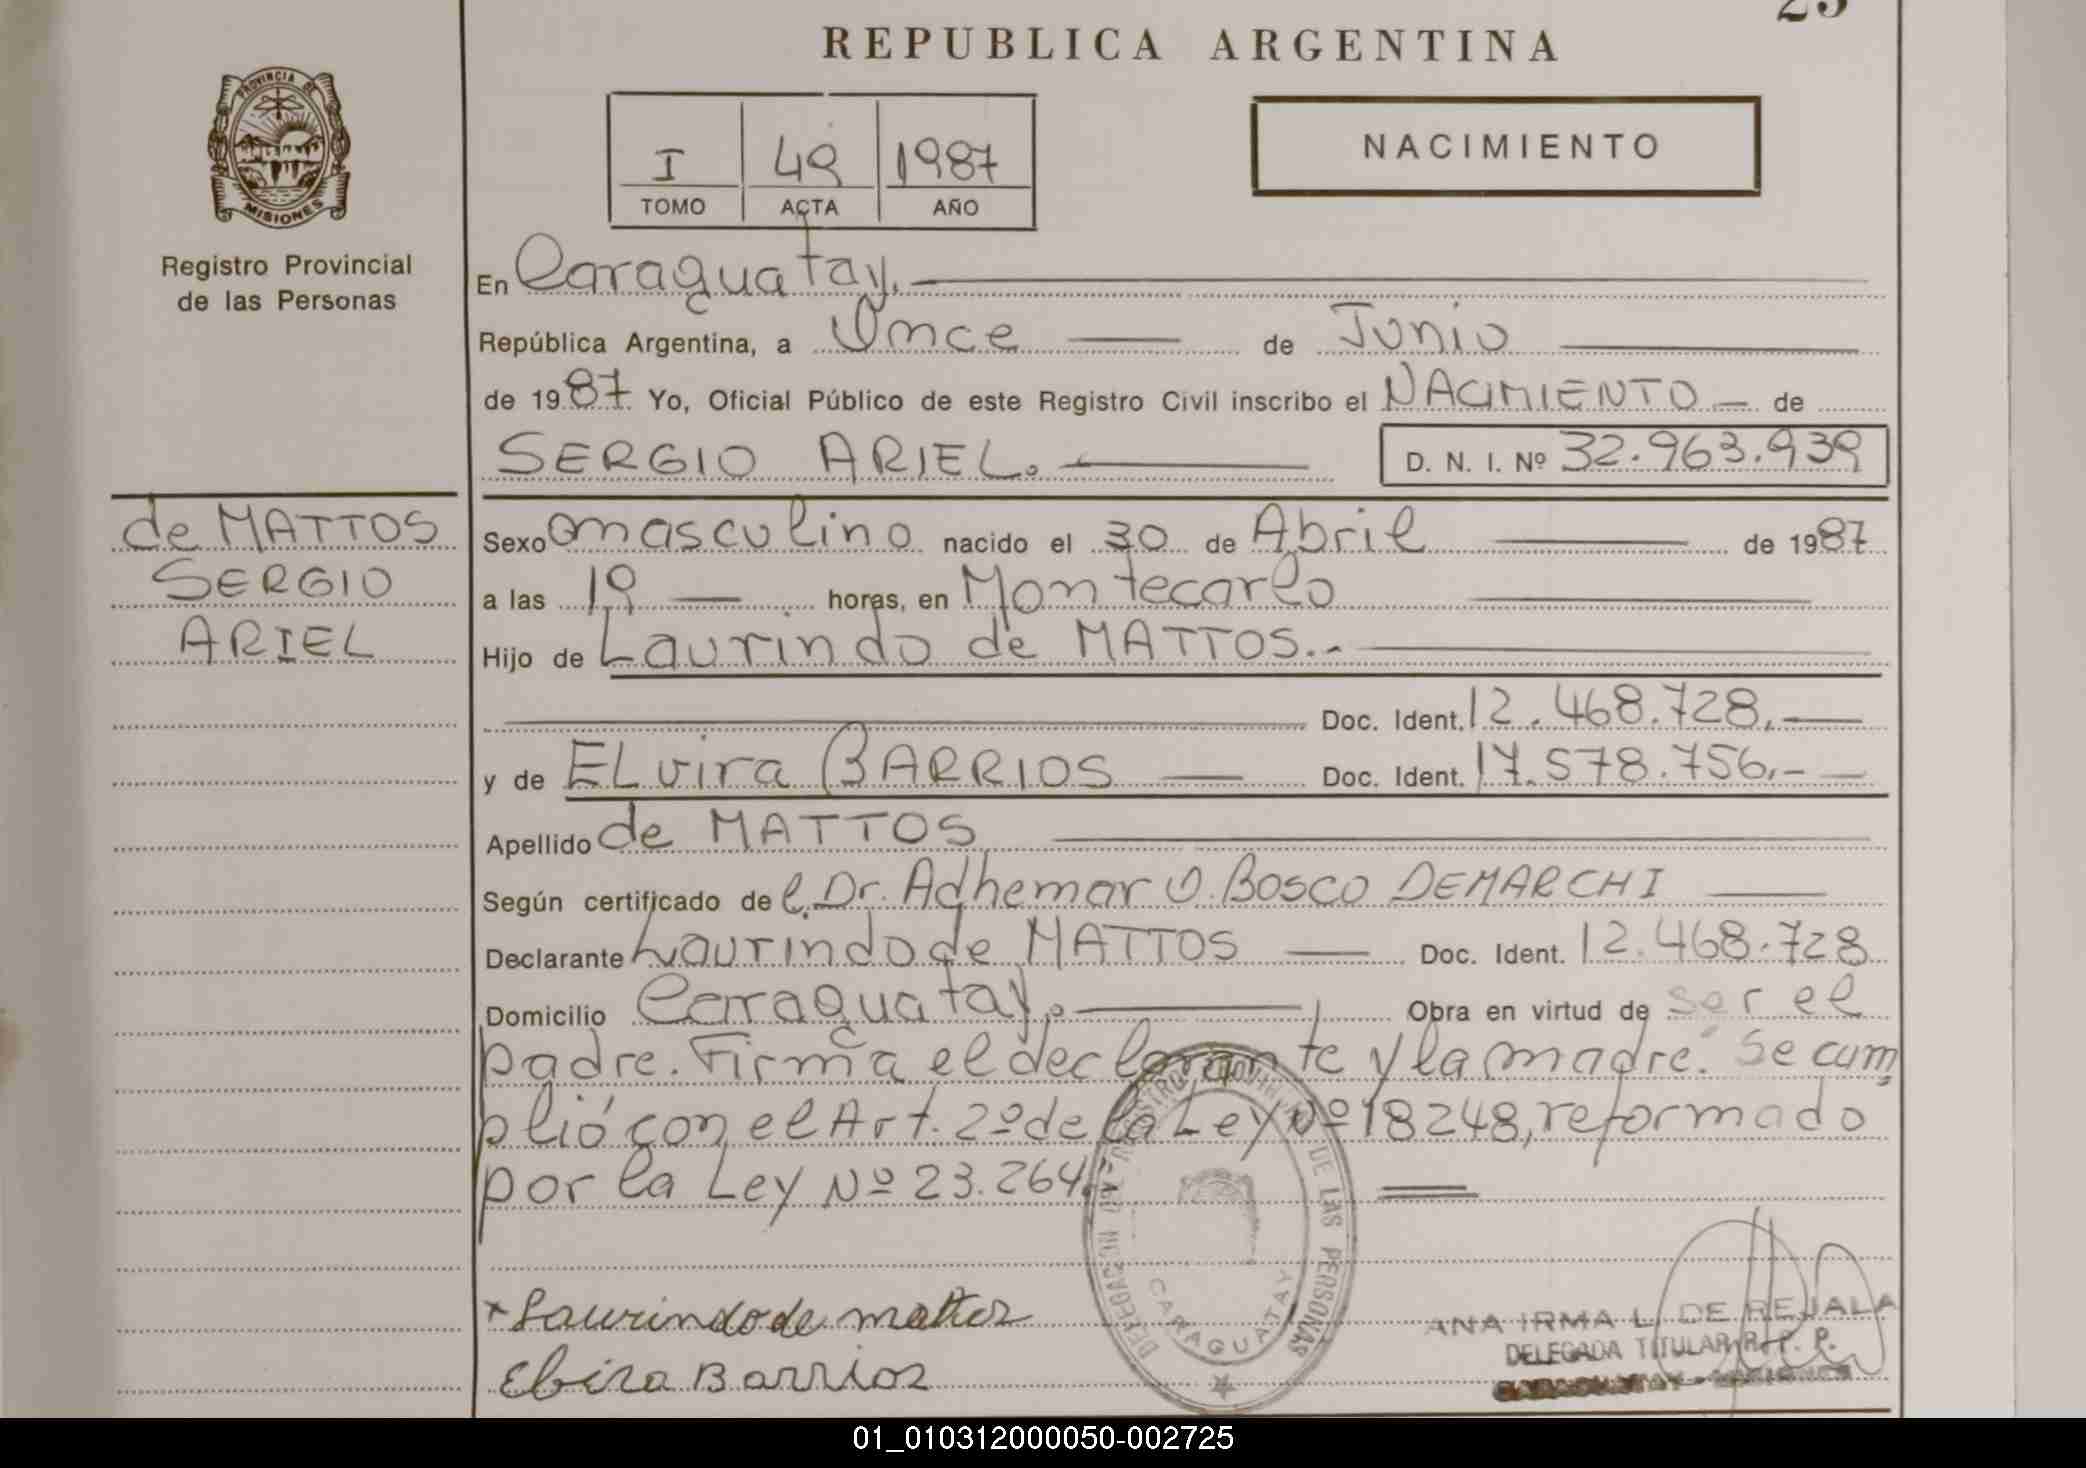 25
REPUBLICA ARGENTINA
PROVINCIA DE
MISIONES
Registro Provincial
de las Personas
I 49 1987
TOMO ACTA AÑO
NACIMIENTO
En Caraguatay.
República Argentina, a Once de Junio
de 1987 Yo, Oficial Público de este Registro Civil inscribo el NACIMIENTO de
SERGIO ARIEL.
D. N. I. Nº 32.963.939
de MATTOS
SERGIO
ARIEL
Sexo masculino nacido el 30 de Abril de 1987
a las 19 horas, en Montecarlo
Hijo de Laurindo de MATTOS.-
Doc. Ident. 12.468.728.
y de ELvira BARRIOS Doc. Ident. 17.578.756.-
Apellido de MATTOS
Según certificado de l Dr. Adhemar O. Bosco DEMARCHI
Declarante Laurindo de MATTOS Doc. Ident. 12.468.728
Domicilio Caraguatay. Obra en virtud de ser el
padre. Firma el declarante y la madre. Se cum
plió con el Art. 2º de la Ley Nº 18248, reformado
por la Ley Nº 23.264.
DE LAS PERSONAS
CARAGUATAY
x Laurindo de mattos
Elbira Barrios
ANA IRMA L. DE REJALA
DELEGADA TITULAR R. P. P.
CARAGUATAY - MISIONES
01_010312000050-002725